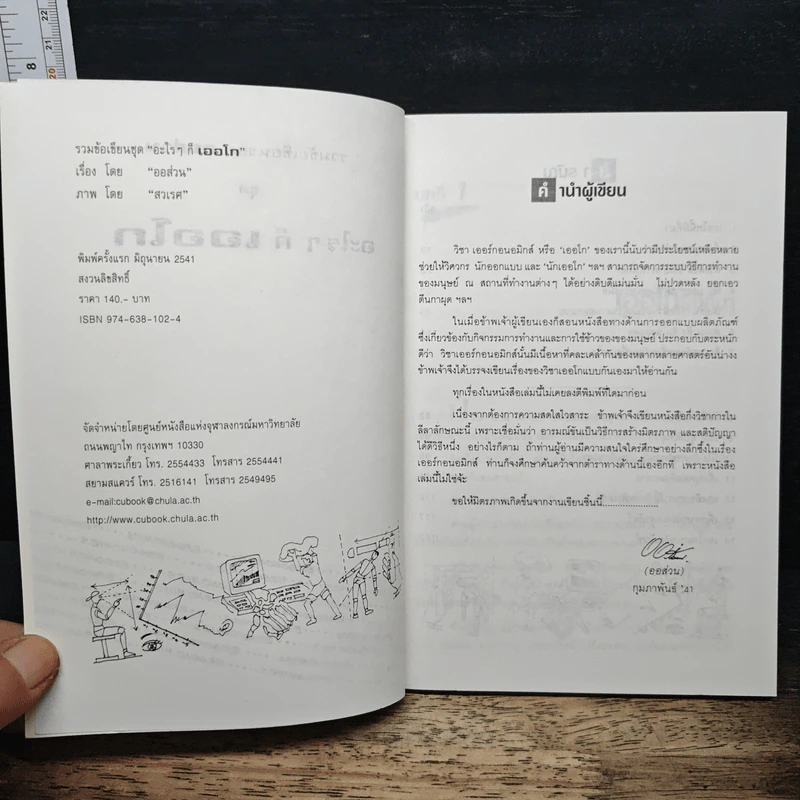 รวมข้อเขียนชุด "อะไรๆ ก็ เออโก"
เรื่อง โดย "ออส่วน"
ภาพ โดย "สวเรศ"
พิมพ์ครั้งแรก มิถุนายน 2541
สงวนลิขสิทธิ์
ราคา 140.- บาท
ISBN 974-638-102-4
จัดจำหน่ายโดยศูนย์หนังสือแห่งจุฬาลงกรณ์มหาวิทยาลัย
ถนนพญาไท กรุงเทพฯ 10330
ศาลาพระเกี้ยว โทร. 2554433 โทรสาร 2554441
สยามสแควร์ โทร. 2516141 โทรสาร 2549495
e-mail:cubook@chula.ac.th
http://www.cubook.chula.ac.th
คำนำผู้เขียน
วิชา เออร์กอนอมิกส์ หรือ 'เออโก' ของเรานี้นับว่ามีประโยชน์เหลือหลาย
ช่วยให้วิศวกร นักออกแบบ และ 'นักเออโก' ฯลฯ สามารถจัดการระบบวิธีการทำงาน
ของมนุษย์ ณ สถานที่ทำงานต่างๆ ได้อย่างดิบดีแม่นมั่น ไม่ปวดหลัง ยอกเอว
ตีนกาผุด ฯลฯ
ในเมื่อข้าพเจ้าผู้เขียนเองก็สอนหนังสือทางด้านการออกแบบผลิตภัณฑ์
ซึ่งเกี่ยวข้องกับกิจกรรมการทำงานและการใช้ข้าวของของมนุษย์ ประกอบกับตระหนัก
ดีว่า วิชาเออร์กอนอมิกส์นั้นมีเนื้อหาที่คละเคล้ากันของหลากหลายศาสตร์อันน่างง
ข้าพเจ้าจึงได้บรรจงเขียนเรื่องของวิชาเออโกแบบกันเองมาให้อ่านกัน
ทุกเรื่องในหนังสือเล่มนี้ไม่เคยลงตีพิมพ์ที่ใดมาก่อน
เนื่องจากต้องการความสดใสไวสาระ ข้าพเจ้าจึงเขียนหนังสือกึ่งวิชาการใน
ลีลาลักษณะนี้ เพราะเชื่อมั่นว่า อารมณ์ขันเป็นวิธีการสร้างมิตรภาพ และสติปัญญา
ได้ดีวิธีหนึ่ง อย่างไรก็ตาม ถ้าท่านผู้อ่านมีความสนใจใคร่ศึกษาอย่างลึกซึ้งในเรื่อง
เออร์กอนอมิกส์ ท่านก็จงศึกษาค้นคว้าจากตำราทางด้านนี้เองอีกที เพราะหนังสือ
เล่มนี้ไม่ใช่จ้ะ
ขอให้มิตรภาพเกิดขึ้นจากงานเขียนชิ้นนี้....................
(ออส่วน)
กุมภาพันธ์ '41
8
22
21
20